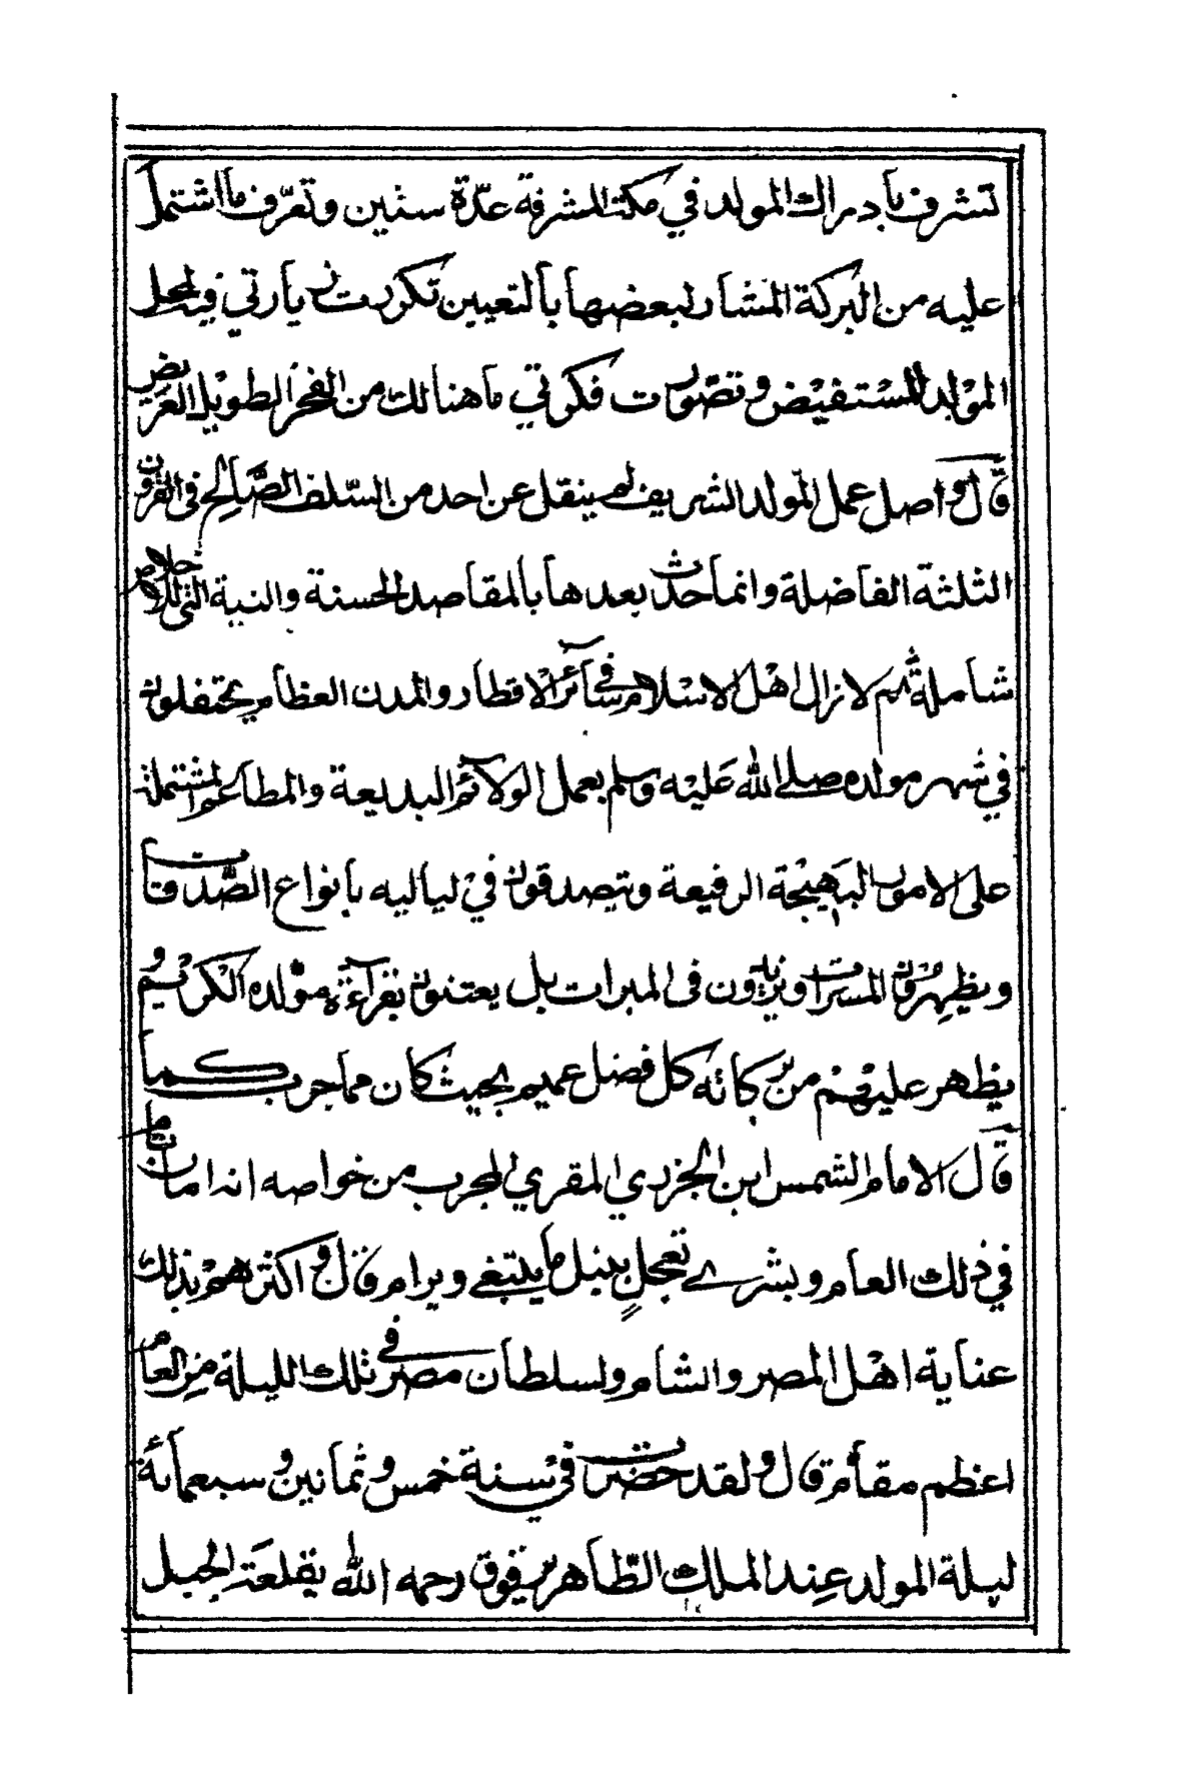 تشرف بادراك المولد في مكة المشرفة عدّة سنين وتعرّف ما اشتمل
عليه من البركة المشار لبعضها بالتعيين تكررت زيارتي فيه لمحل
المولد المستفيض وتصوّرت فكرتي ما هنالك من الفخر الطويل العريض
قال واصل عمل المولد الشريف لم ينقل عن احد من السّلف الصّالح في القرون
الثلثة الفاضلة وانما حدث بعدها بالمقاصد الحسنة والنية التي للاخلاص
شاملة ثم لازال اهل الاسلام في سائر الاقطار والمدن العظام يحتفلون
في شهر مولده صلى الله عليه وسلم بعمل الولائم البديعة والمطاعم المشتملة
على الامور البهيجة الرفيعة ويتصدقون في لياليه بانواع الصّدقات
ويظهرون المسرات ويزيدون في المبرات بل يعتنون بقرآءة مولده الكريم و
يظهر عليهم من بركاته كل فضل عميم بحيث كان مما جرب كما
قال الامام الشمس ابن الجزري المقري المجرب من خواصه انه امان تام
في ذلك العام وبشرى تعجل بنيل ما ينبغي ويرام قال واكثرهم بذلك
عناية اهل المصر والشام ولسلطان مصر في تلك الليلة من العام
اعظم مقام قال ولقد حضرت في سنة خمس وثمانين وسبعمائة
ليلة المولد عند الملك الظّاهر برقوق رحمه الله بقلعة الجبل